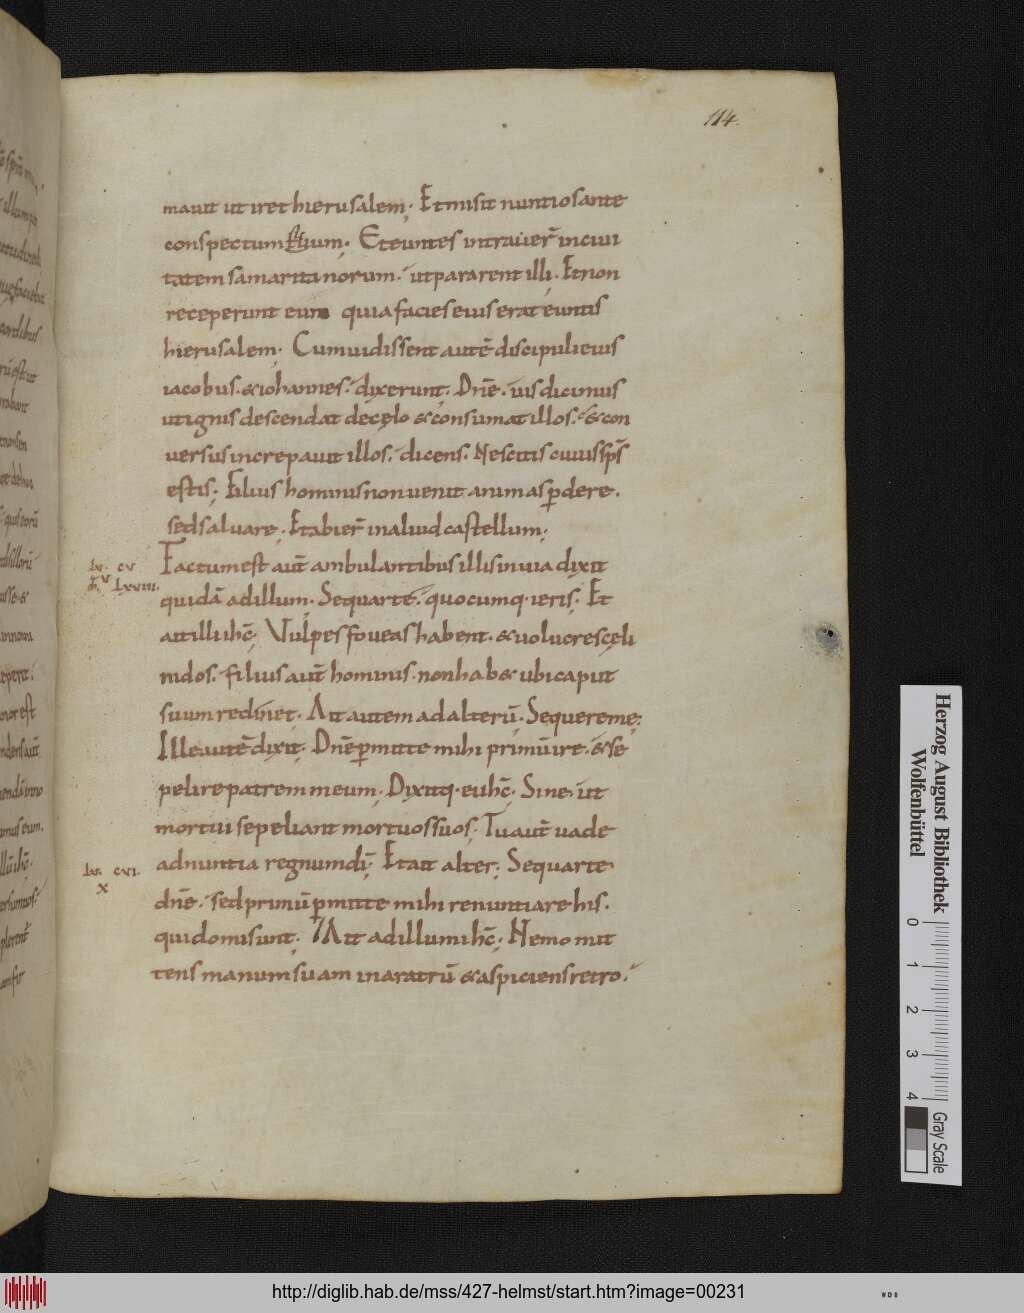 114.
mavit ut iret hierusalem. Et misit nuntios ante
conspectum suum. Et euntes intraver̄ in civi
tatem samaritanorum. ut pararent illi. Et non
receperunt eum quia facies eius erat euntis
hierusalem. Cum vidissent autē discipuli eius
iacobus. & iohannes. dixerunt. Dnē. vis dicimus
ut ignis descendat de cęlo & consumat illos. & con
versus increpavit illos. dicens. Nescitis cuius sp̄s
estis. Filius hominis non venit animas ꝑdere.
sed salvare. Et abier̄ in aliud castellum.
Factum est aut̄ ambulantibus illis in via dixit
lu. cv
quidā ad illum. Sequar te. quocumq. ieris. Et
m̄. v lxviiii.
ait illi ih̄c. Vulpes foveas habent. & volucres cęli
nidos. filius aut̄ hominis. non hab& ubi caput
suum reclinet. Ait autem ad alterū. Sequere me.
Ille autē dixit. Dnē ꝑmitte mihi primū ire. & se
pelire patrem meum. Dixitq. ei ih̄c. Sine. ut
mortui sepeliant mortuos suos. Tu aut̄ vade
adnuntia regnum dī. Et ait alter. Sequar te
lu. cvi.
x
dnē. sed primū ꝑmitte mihi renuntiare his.
qui domi sunt. Ait ad illum ih̄c. Nemo mit
tens manum suam in aratrū & aspiciens retro.
Herzog August Bibliothek
Wolfenbüttel
0 1 2 3 4
Gray Scale
http://diglib.hab.de/mss/427-helmst/start.htm?image=00231